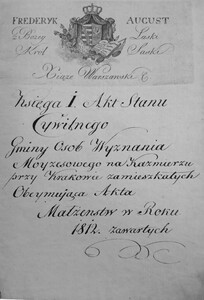 FREDERYK AUGUST
z Bożey Łaski
Król Saski
Xiąże Warszawski &
Księga I Akt Stanu
Cywilnego
Gminy Osob Wyznania
Moyzesowego na Kazmierzu
przy Krakowie zamieszkałych
Obeymująca Akta
Małżenstw w Roku
1812. zawartych